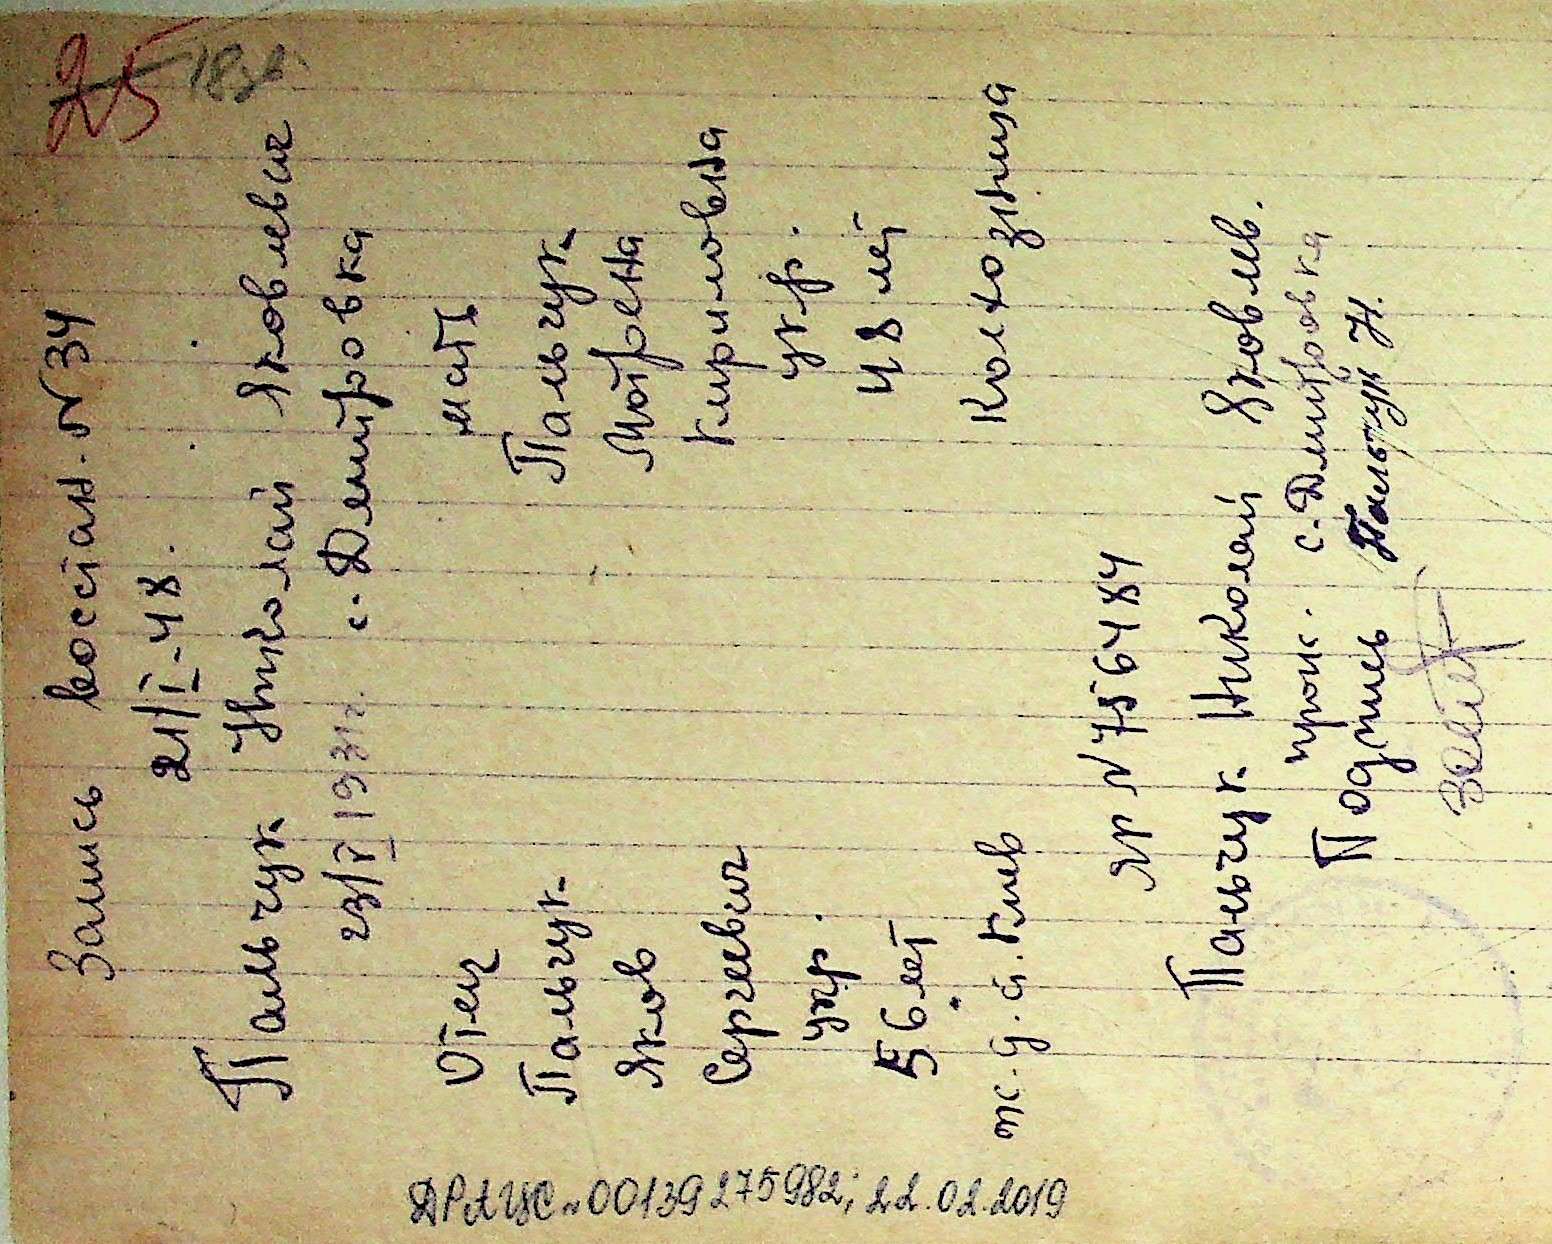 25 18
Запись восстан. № 34
21/I-48.
Пальчук Николай Яковлевич
23/V 1931г. с. Дмитровка
Отец мать
Пальчук Пальчук
Яков Мотрена
Сергеевич Кириловна
укр. укр.
56 лет 48 лет
ж. д. ст. Киев колхозница
ЯР № 756484
Пальчук Николай Яковлев.
прож. с. Дмитровка
Подпись Пальчук Н.
ДРАЦС № 00139275982; 22.02.2019